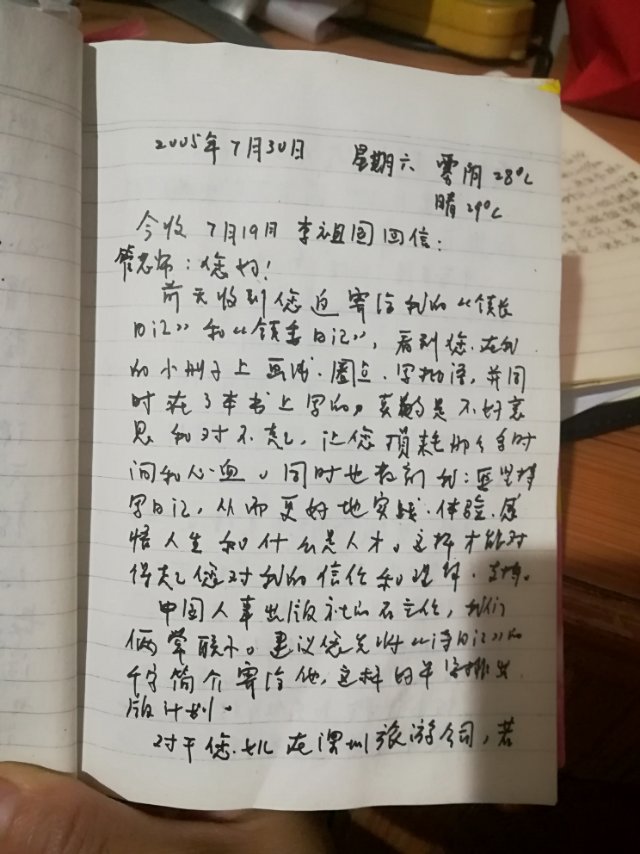 2005年7月30日 星期六 雾阴28℃
晴29℃
今收7月19日李祖国回信:
老师:您好!
前天收到您迫寄给我的《镇长
日记》和《领导日记》,看到您在我
的小册子上画线·圈点·字批语,并同
时在了本书上写的,真的是不好意
思和对不起,让您损耗那么多时
间和心血。同时也教育我:要坚持
写日记,从而更好地实践·体验·感
悟人生和什么是人才。这样才能对
得起您对我的信任和理解·支持。
中国人事出版社的石主任,我们
俩常联系。建议您先将《诗日记》的
千字简介寄给他,这样的早安排出
版计划。
对于您女儿在深圳旅游公司,若